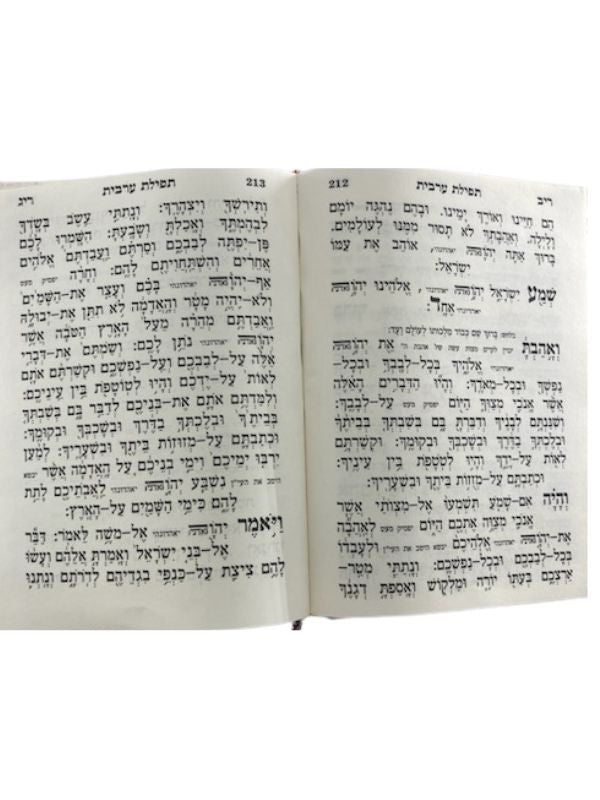 ריב תפילת ערבית 212
הֵם חַיֵּינוּ וְאוֹרֶךְ יָמֵינוּ. וּבָהֶם נֶהְגֶּה יוֹמָם
וָלַיְלָה. וְאַהֲבָתְךָ לֹא תָסוּר מִמֶּנּוּ לְעוֹלָמִים.
בָּרוּךְ אַתָּה יְהֹוָה יאהדונהי, אוֹהֵב אֶת עַמּוֹ
יִשְׂרָאֵל:
שְׁמַ֖ע יִשְׂרָאֵ֑ל יְהֹוָ֥ה יאהדונהי אֱלֹהֵ֖ינוּ יְהֹוָ֥ה
יאהדונהי אֶחָֽד:
בלחש: בָּרוּךְ שֵׁם כְּבוֹד מַלְכוּתוֹ לְעוֹלָם וָעֶד:
וְאָ֣הַבְתָּ֔ יכוין לקיים מצות עשה של אהבת ה' אֵ֖ת יְהֹוָ֣ה
יאהדונהי אֱלֹהֶ֑יךָ בְּכָל-לְבָבְךָ֥ וּבְכָל-
נַפְשְׁךָ֖ וּבְכָל-מְאֹדֶֽךָ: וְהָי֞וּ הַדְּבָרִ֣ים הָאֵ֗לֶּה
אֲשֶׁ֨ר אָנֹכִ֧י מְצַוְּךָ֛ הַיּ֖וֹם יפסיק מעט עַל-לְבָבֶֽךָ:
וְשִׁנַּנְתָּ֣ם לְבָנֶ֔יךָ וְדִבַּרְתָּ֖ בָּ֑ם בְּשִׁבְתְּךָ֤ בְּבֵיתֶ֙ךָ֙
וּבְלֶכְתְּךָ֣ בַדֶּ֔רֶךְ וּֽבְשָׁכְבְּךָ֖ וּבְקוּמֶֽךָ: וּקְשַׁרְתָּ֥ם
לְא֖וֹת עַל-יָדֶ֑ךָ וְהָי֥וּ לְטֹטָפֹ֖ת בֵּ֥ין עֵינֶֽיךָ:
וּכְתַבְתָּ֛ם עַל-מְזֻז֥וֹת בֵּיתֶ֖ךָ וּבִשְׁעָרֶֽיךָ:
וְהָיָ֗ה אִם-שָׁמֹ֤עַ תִּשְׁמְעוּ֙ אֶל-מִצְוֺתַ֔י אֲשֶׁ֧ר
אָנֹכִ֛י מְצַוֶּ֥ה אֶתְכֶ֖ם הַיּ֑וֹם יפסיק מעט לְאַהֲבָ֞ה
אֶת-יְהֹוָ֤ה יאהדונהי אֱלֹֽהֵיכֶם֙ יבטא היטב את העי"ן וּלְעׇבְד֔וֹ
בְּכָל-לְבַבְכֶ֖ם וּבְכָל-נַפְשְׁכֶֽם: וְנָתַתִּ֧י מְטַֽר-
אַרְצְכֶ֛ם בְּעִתּ֖וֹ יוֹרֶ֣ה וּמַלְק֑וֹשׁ וְאָסַפְתָּ֣ דְגָנֶ֔ךָ
213 תפילת ערבית ריג
וְתִירֹֽשְׁךָ֖ וְיִצְהָרֶֽךָ: וְנָתַתִּ֛י עֵ֥שֶׂב בְּשָׂדְךָ֖
לִבְהֶמְתֶּ֑ךָ וְאָכַלְתָּ֖ וְשָׂבָֽעְתָּ: הִשָּֽׁמְר֣וּ לָכֶ֔ם
פֶּן-יִפְתֶּ֖ה לְבַבְכֶ֑ם וְסַרְתֶּ֗ם וַעֲבַדְתֶּם֙ אֱלֹהִ֣ים
אֲחֵרִ֔ים וְהִשְׁתַּחֲוִיתֶ֖ם לָהֶֽם: וְחָרָ֨ה יפסיק מעט
אַף-יְהֹוָ֜ה יאהדונהי בָּכֶ֗ם וְעָצַ֤ר אֶת-הַשָּׁמַ֙יִם֙
וְלֹֽא-יִהְיֶ֣ה מָטָ֔ר וְהָ֣אֲדָמָ֔ה לֹ֥א תִתֵּ֖ן אֶת-יְבוּלָ֑הּ
וַאֲבַדְתֶּ֣ם מְהֵרָ֗ה מֵעַל֙ הָאָ֣רֶץ הַטֹּבָ֔ה אֲשֶׁ֥ר
יְהֹוָ֖ה יאהדונהי נֹתֵ֥ן לָכֶֽם: וְשַׂמְתֶּם֙ אֶת-דְּבָרַ֣י
אֵ֔לֶּה עַל-לְבַבְכֶ֖ם וְעַֽל-נַפְשְׁכֶ֑ם וּקְשַׁרְתֶּ֨ם אֹתָ֤ם
לְאוֹת֙ עַל-יֶדְכֶ֔ם וְהָי֥וּ לְטוֹטָפֹ֖ת בֵּ֥ין עֵינֵיכֶֽם:
וְלִמַּדְתֶּ֥ם אֹתָ֛ם אֶת-בְּנֵיכֶ֖ם לְדַבֵּ֣ר בָּ֑ם בְּשִׁבְתְּךָ֤
בְּבֵיתֶ֙ךָ֙ וּבְלֶכְתְּךָ֣ בַדֶּ֔רֶךְ וּֽבְשָׁכְבְּךָ֖ וּבְקוּמֶֽךָ:
וּכְתַבְתָּ֛ם עַל-מְזוּז֥וֹת בֵּיתֶ֖ךָ וּבִשְׁעָרֶֽיךָ: לְמַ֨עַן
יִרְבּ֤וּ יְמֵיכֶם֙ וִימֵ֣י בְנֵיכֶ֔ם עַ֚ל הָֽאֲדָמָ֔ה אֲשֶׁ֨ר יבטא
היטב את העי"ן נִשְׁבַּ֧ע יְהֹוָ֛ה יאהדונהי לַאֲבֹתֵיכֶ֖ם לָתֵ֣ת
לָהֶ֑ם כִּימֵ֥י הַשָּׁמַ֖יִם עַל-הָאָֽרֶץ:
וַיֹּ֥אמֶר יְהֹוָ֖ה יאהדונהי אֶל-מֹשֶׁ֥ה לֵּאמֹֽר: דַּבֵּ֞ר
אֶל-בְּנֵ֤י יִשְׂרָאֵל֙ וְאָמַרְתָּ֣ אֲלֵהֶ֔ם וְעָשׂ֨וּ
לָהֶ֥ם צִיצִ֛ת עַל-כַּנְפֵ֥י בִגְדֵיהֶ֖ם לְדֹרֹתָ֑ם וְנָֽתְנ֛וּ